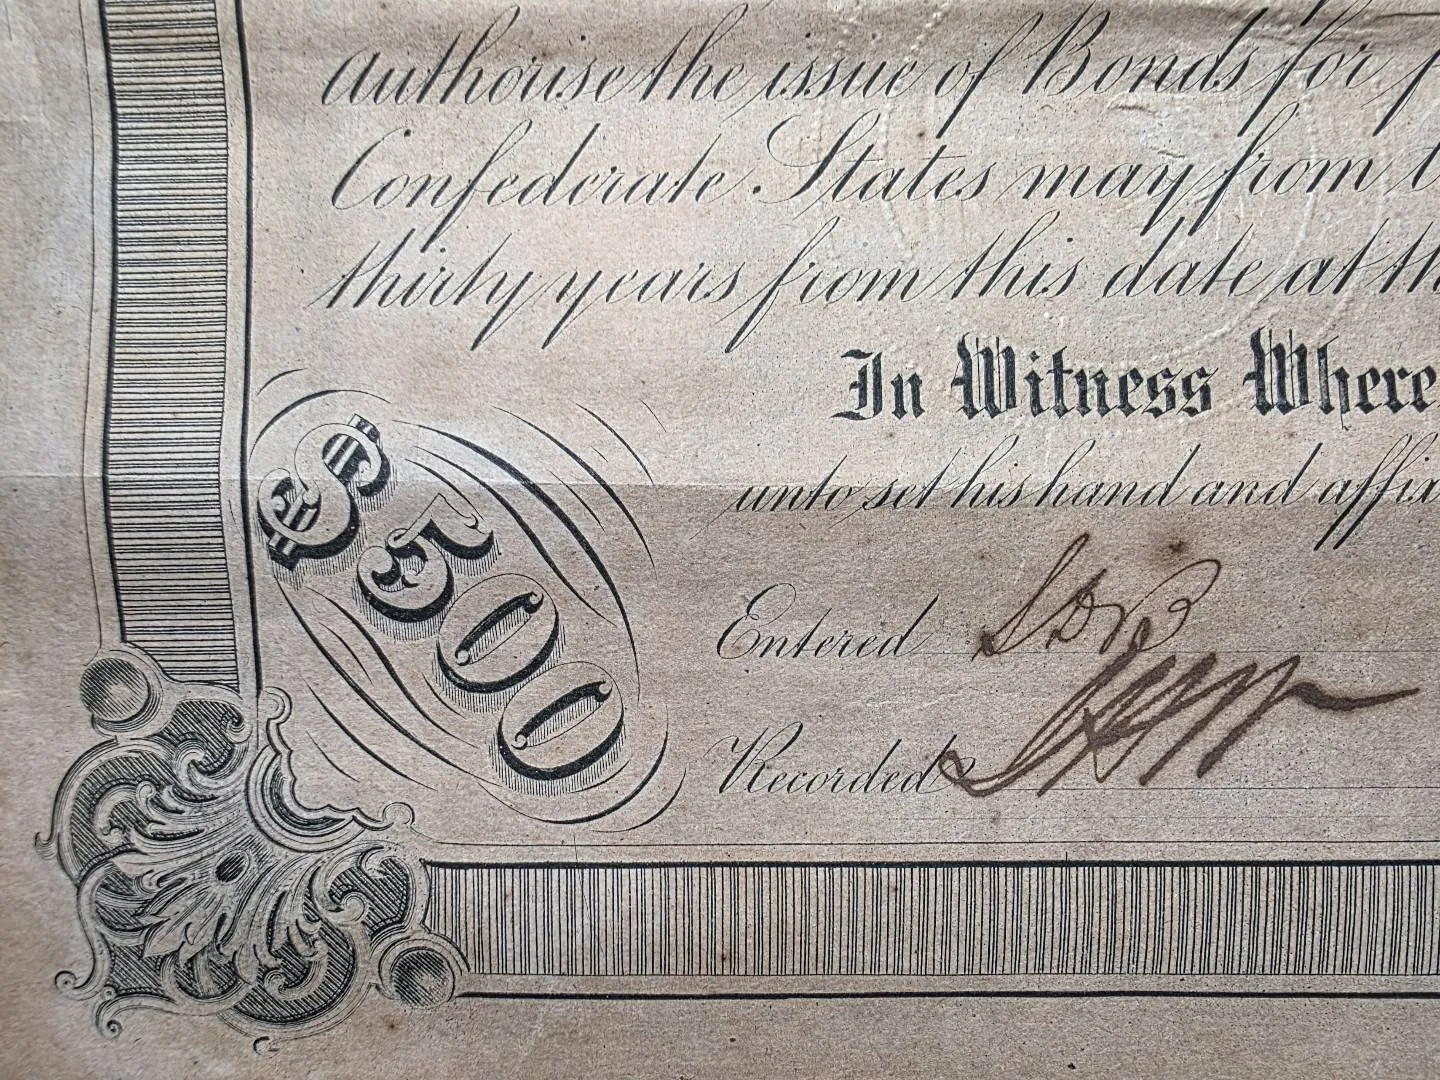 authorise the issue of Bonds for
Confederate States may from
thirty years from this date at
In Witness Where
unto set his hand and affix
$500
Entered
Recorded